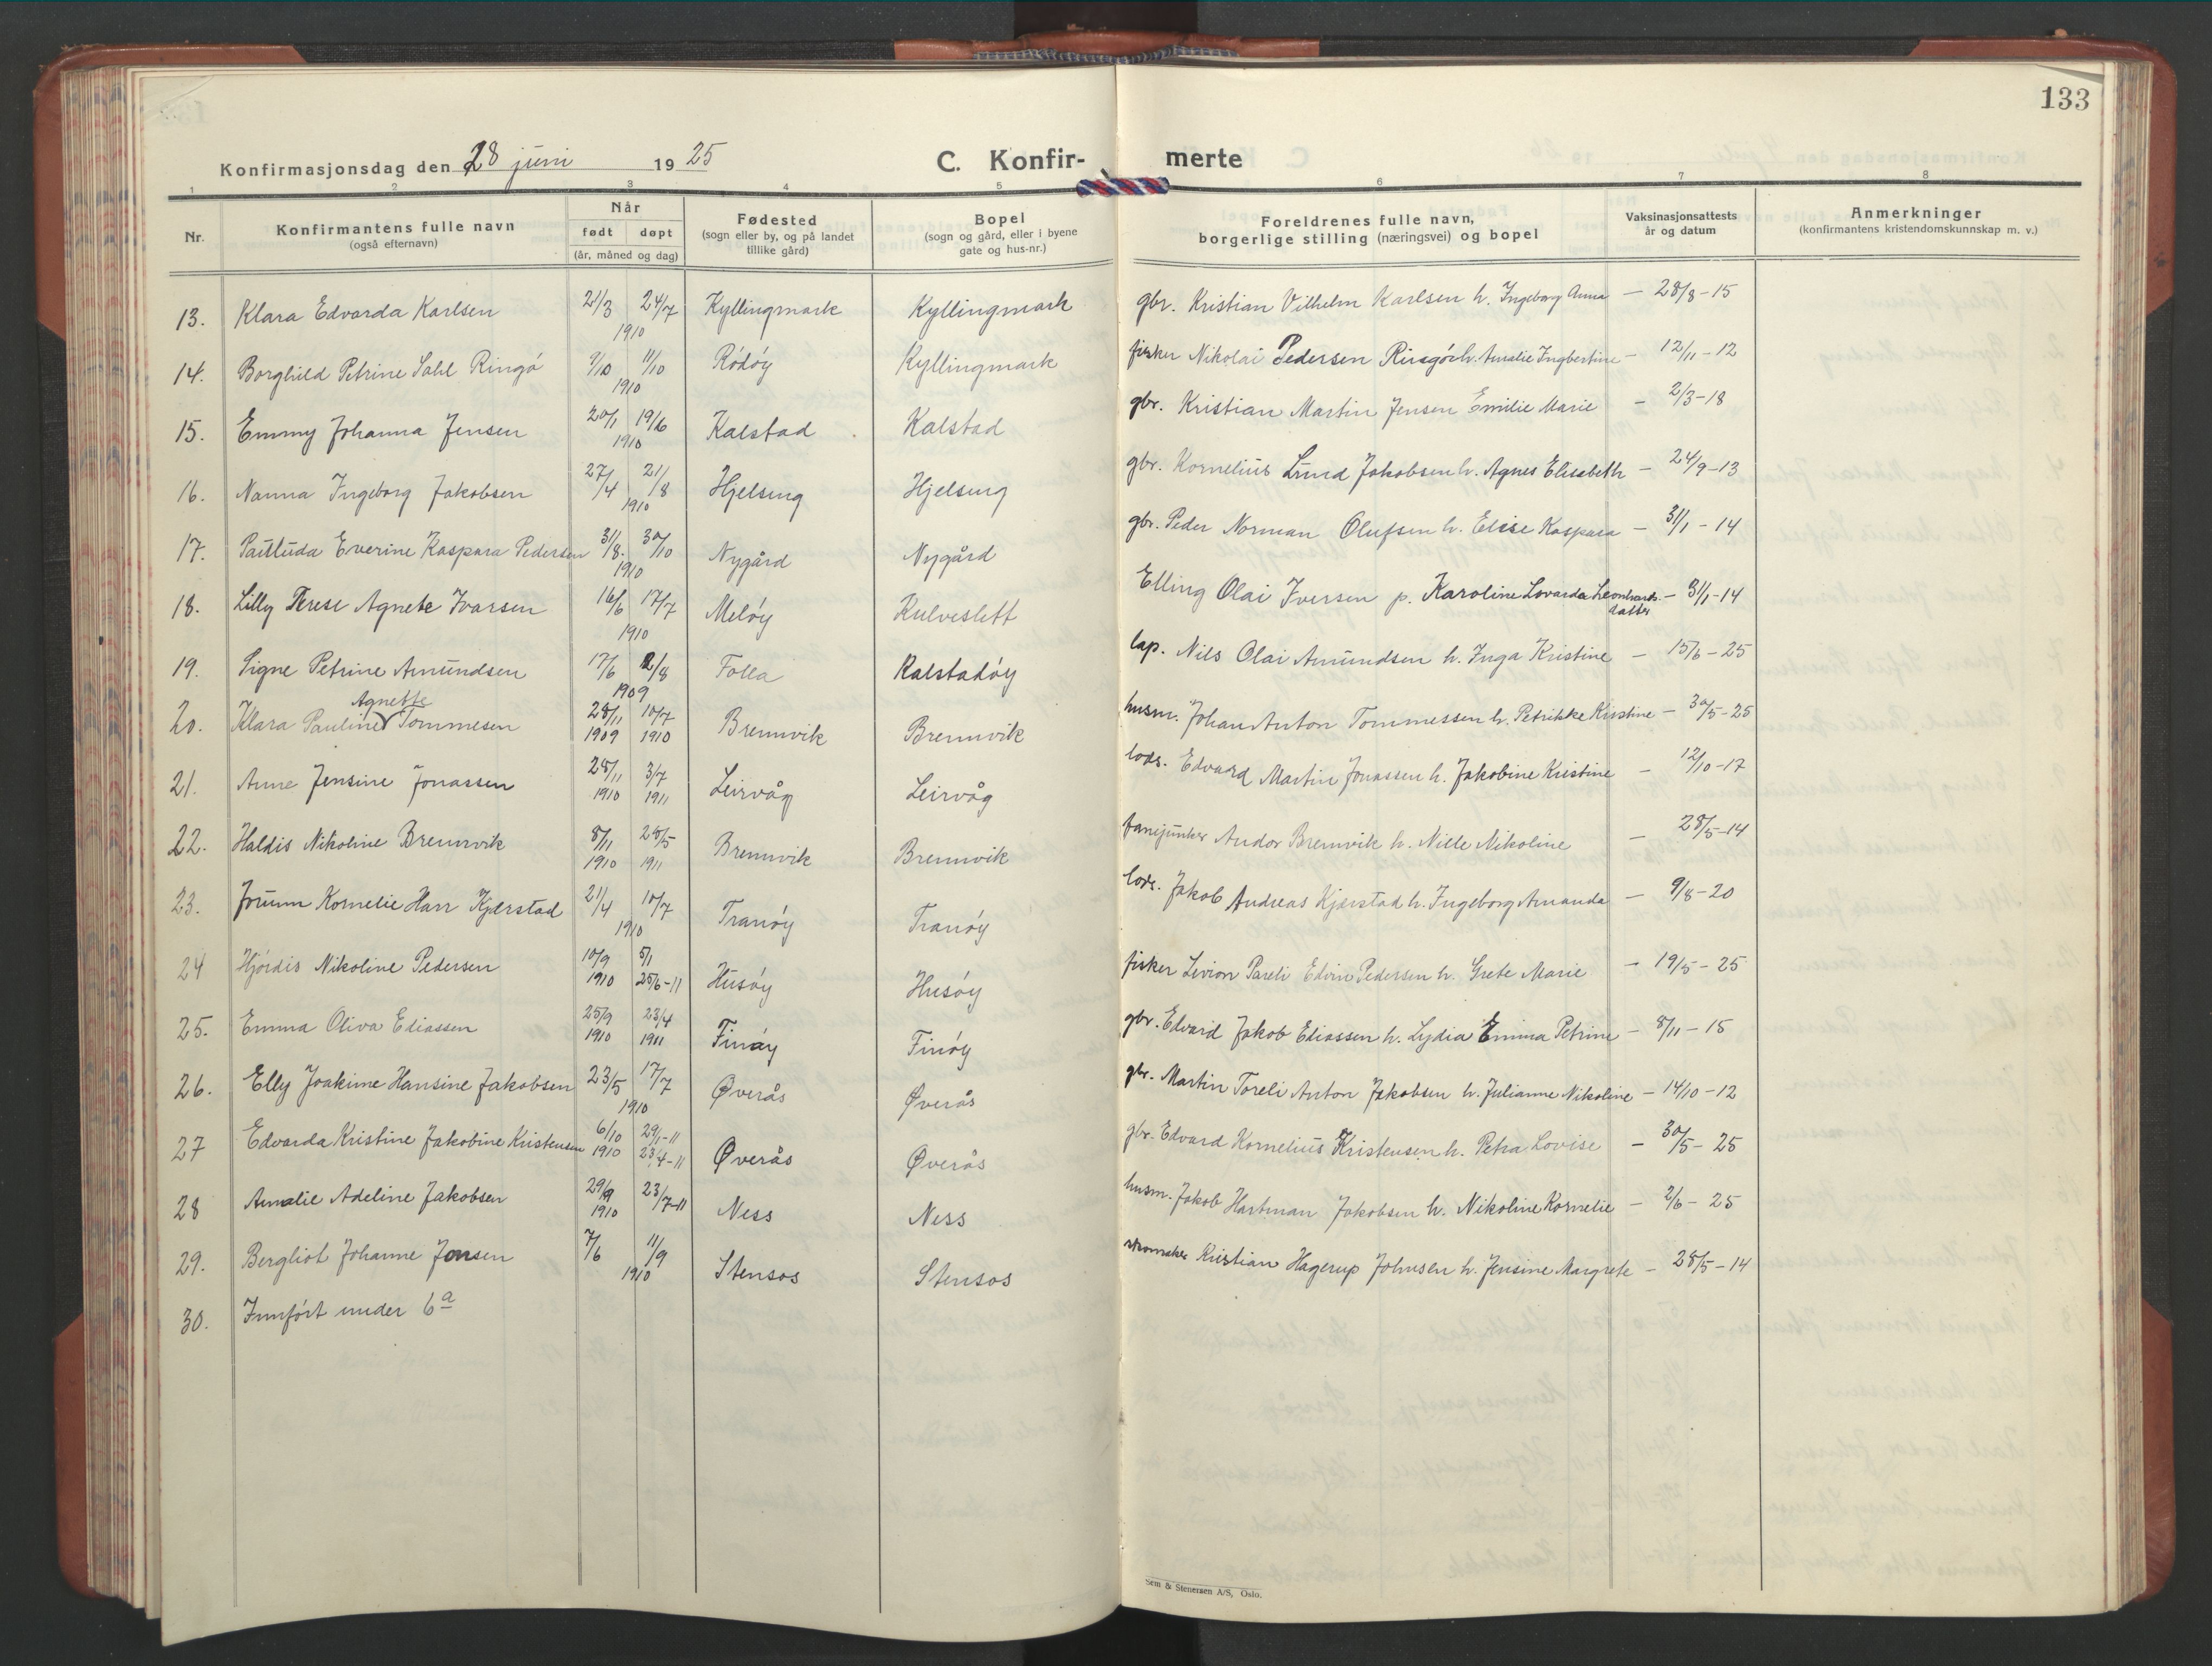 133
Konfirmasjonsdag den 28 juni 1925 C. Konfir- merte
1 2 3 4 5 6 7 8
Nr. Konfirmantens fulle navn (også efternavn) Når født døpt (år, måned og dag) Fødested (sogn eller by, og på landet tillike gård) Bopel (sogn og gård, eller i byene gate og hus-nr.) Foreldrenes fulle navn, borgerlige stilling (næringsvei) og bopel Vaksinasjonsattests år og datum Anmerkninger (konfirmantens kristendomskunnskap m. v.)
13. Klara Edvarda Karlsen 21/3 24/7 1910 Kyllingmark Kyllingmark gbr. Kristian Vilhelm Karlsen h. Ingeborg Anna — 28/8-15
14. Borghild Petrine Dahl Ringø 11/10 1910 Rödöy Kyllingmark fisker Nikolai Pedersen Ringö h. Amalie Ingbertine — 12/11-12
15. Emmy Johanna Jensen 20/1 19/6 1910 Kalstad Kalstad gbr. Kristian Martin Jensen Emilie Marie — 2/3-18
16. Nanna Ingeborg Jakobsen 27/4 21/8 1910 Hjelsing Hjelsing gbr. Kornelius Lund Jakobsen h. Agnes Elisabeth — 24/9-13
17. Pauluda Everine Kaspara Pedersen 31/8. 30/10 1910 Nygård Nygård gbr. Peder Norman Olufsen h. Elise Kaspara — 31/1-14
18. Lilly Terese Agnete Ivarsen 16/6 17/7 1910 Melöy Kulveslett Elling Olai Iversen p. Karoline Lovarda Leonhards-datter — 31/1-14
19. Signe Petrine Amundsen 17/6 2/8 1909 Folla Kalstadöy lap. Nils Olai Amundsen h. Inga Kristine — 15/6-25
20. Klara Pauline Agnette Tommesen 28/11 1909 10/7 1910 Brennvik Brennvik husm. Johan Anton Tommessen h. Petrikke Kristine — 30/5-25
21. Anne Jensine Jonassen 28/11 1910 3/7 1911 Leirvåg Leirvåg lods. Edvard Martin Jonassen h. Jakobine Kristine — 12/10-17
22. Haldis Nikoline Brennvik 8/11 1910 28/5 1911 Brennvik Brennvik fanejunker Andor Brennvik h. Nille Nikoline — 28/5-14
23. Jorunn Kornelie Harr Kjærstad 21/4 10/7 1910 Tranöy Tranöy lods. Jakob Andreas Kjærstad h. Ingeborg Amanda — 9/8-20
24 Hjördis Nikoline Pedersen 10/9 1910 5/1 25/6-11 Husöy Husöy fisker Livion Pareli Edvin Pedersen h. Grete Marie — 19/5-25
25. Emma Oliva Eliassen 25/9 1910 23/4 1911 Finöy Finöy gbr. Edvard Jakob Eliassen h. Lydia Emma Petrine — 8/11-15
26. Elly Joakime Hansine Jakobsen 23/5 17/7 1910 Øverås Øverås gbr. Martin Toreli Anton Jakobsen h. Julianne Nikoline — 14/10-12
27 Edvarda Kristine Jakobine Kristensen 6/10 1910 29/1-11 23/4-11 Øverås Øverås gbr. Edvard Kornelius Kristensen h. Petra Lovise — 30/5-25
28 Amalie Adeline Jakobsen 29/9 1910 23/7-11 Ness Ness husm. Jakob Hartman Jakobsen h. Nikoline Kornelie — 2/6-25
29. Bergliot Johanne Jonsen 7/6 11/9 1910 Stensos Stensos skomaker Kristian Hagerup Johnsen h. Jensine Margrete — 28/5-14
30. Innfört under 6a
Sem & Stenersen A/S, Oslo.